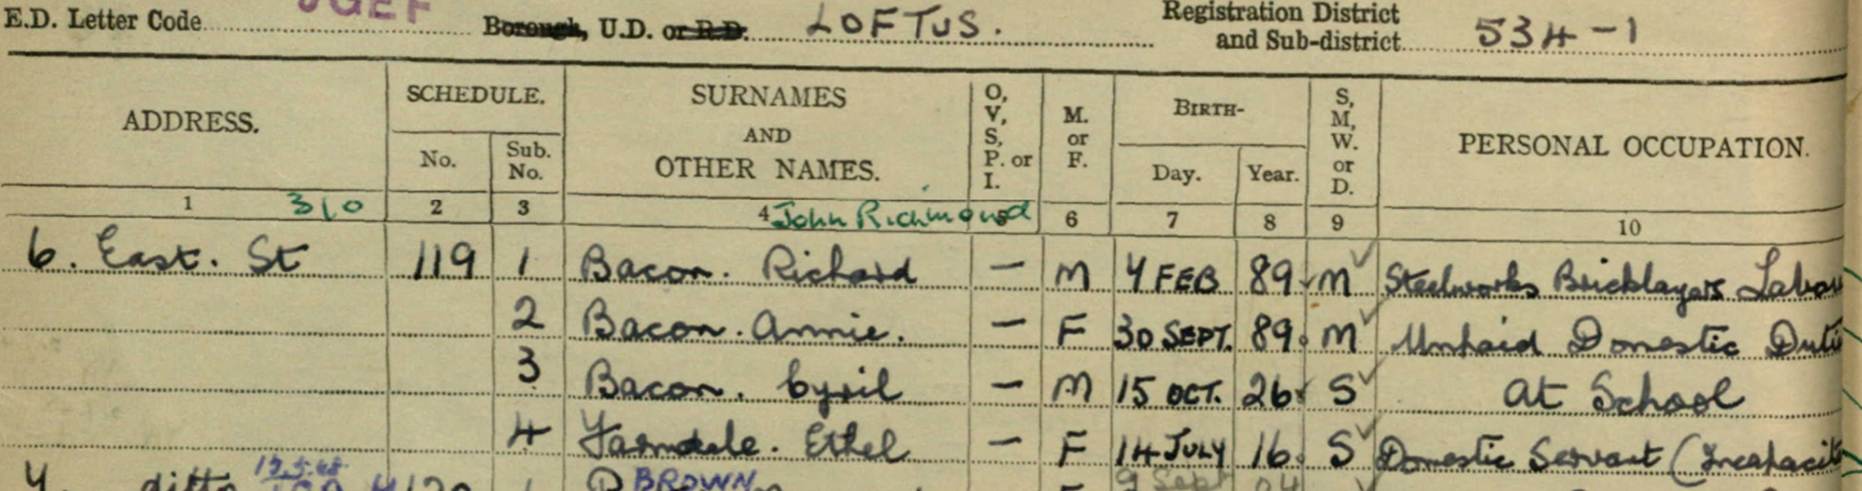 E.D. Letter Code Borough, U.D. or R.D. LOFTUS. Registration District and Sub-district 534-1
ADDRESS. SCHEDULE. No. Sub. No. SURNAMES AND OTHER NAMES. O, V, S, P. or I. M. or F. BIRTH- Day. Year. S, M, W. or D. PERSONAL OCCUPATION.
1 310 2 3 4 John Richmond 5 6 7 8 9 10
6. East. St 119 1 Bacon. Richard — M 4 FEB 89 M Steelworks Bricklayers Labou
2 Bacon. Annie. — F 30 SEPT. 89 M Unpaid Domestic Duti
3 Bacon. Cyril — M 15 OCT. 26 S At School
4 Farndale. Ethel — F 14 JULY 16 S Domestic Servant (Incapacit
ditto BROWN